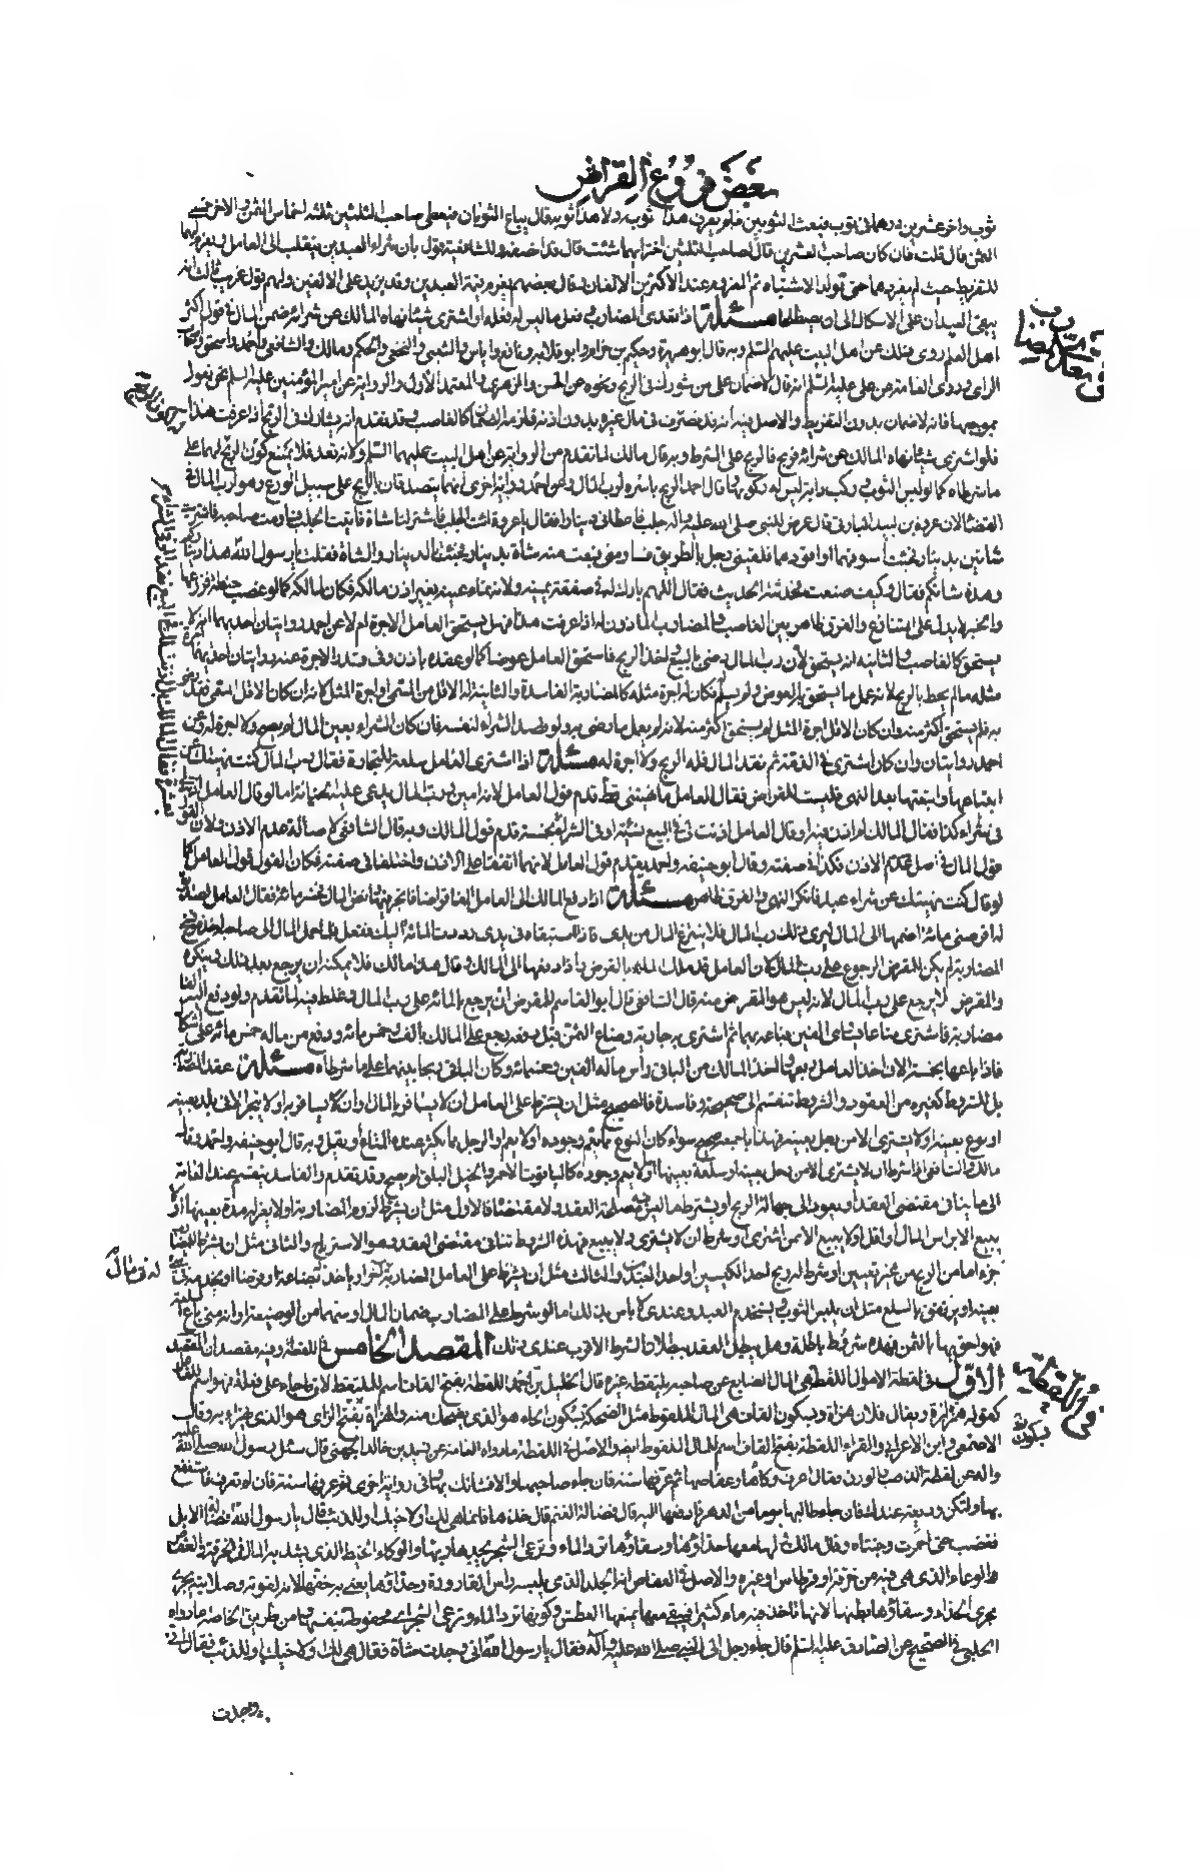 بعض فروع القراض
ثوب واخر عشرين درهما في ثوب فبعث الثوبين فلم يعرف هذا ثوبه ولا هذا ثوبه قال يباع الثوبان فيعطى صاحب الثلثين ثلثة اخماس الثمن والاخر خمسى
الثمن قال قلت فان كان صاحب العشرين قال لصاحب الثلثين اختر ايهما شئت قال قد انصفه وللشافعية قول بان شراء العبدين ينقلب الى العامل ويغرم لهما
للتفريط حيث لم يفردهما حتى تولد الاشتباه ثم الغرم عند الاكثرين الالفان وقال بعضهم يغرم قيمة العبدين وقد يزيد على الالفين ولهم قول غريب ثالث انه
يبقى العبدان على الاشكال الى ان يصطلحا مسئلة اذا تعدى المضارب وفعل ما ليس له فعله او اشترى شيئا نهاه المالك عن شرائه ضمن المال في قول اكثر
اهل العلم روى ذلك عن اهل البيت عليهم السلم وبه قال ابو هريرة وحكيم بن حزام وابو قلابه ونافع واياس والشعبى والنخعى والحكم ومالك والشافعى واحمد واسحق واصحاب
الراى وروى العامة عن على عليه السلم انه قال لا ضمان على من شورك في الربح ونحوه عن الحسن والزهرى والمعتمد الاول والرواية عن امير المؤمنين عليه السلم نحن نقول
بموجبها فانه لا ضمان بدون التفريط والاصل فيه انه قد تصرف في مال غيره بدون اذنه فلزمه الضمان كالغاصب وقد تقدم انه يشارك في الربح اذا عرفت هذا
فلو اشترى شيئا نهاه المالك عن شرائه فربح فالربح على الشرط وبه قال مالك لما تقدم من الرواية عن اهل البيت عليهما السلم ولانه تعد فلا يمنع كون الربح لهما على
ما شرطاه كما لو لبس الثوب وركب دابة ليس له ركوبها وقال احمد الربح باسره لرب المال وعن احمد رواية اخرى انهما يتصدقان بالربح على سبيل الورع وهو لرب المال في
القضاء لان عروة بن لبيد البارقى قال عرض للنبى صلى الله عليه واله جلب فاعطانى دينارا فقال يا عروة ائت الجلب فاشتر لنا شاة فاتيت الجلب فساومت صاحبه فاشتريت
شاتين بدينار فجئت اسوقهما او اقودهما فلقينى رجل بالطريق فساومنى فبعت منه شاة بدينار فجئت بالدينار والشاة فقلت يا رسول الله هذا ديناركم
وهذه شاتكم فقال وكيف صنعت فحدثته الحديث فقال اللهم بارك له في صفقة يمينه ولانه نماء عينه بغير اذن مالكه فكان لمالكه كما لو غصب حنطة فزرعها
والخبر لا يدل على المتنازع والفرق ظاهر بين الغاصب والمضارب الماذون له اذا عرفت هذا فهل يستحق العامل الاجرة ام لا عن احمد روايتان احديهما انه لا
يستحق كالغاصب والثانية انه يستحق لان رب المال رضى بالبيع واخذ الربح فاستحق العامل عوضا كما لو عقده باذن وفى قدر الاجرة عنده روايتان احديهما اجرة
مثله ما لم يحط بالربح لانه عمل ما يستحق به العوض ولم يسلم له فكان له اجرة مثله كالمضاربة الفاسدة والثانية له الاقل من المسمى او اجرة المثل لانه ان كان الاقل المسمى فقد رضى
به فلم يستحق اكثر منه وان كان الاقل اجرة المثل لم يستحق اكثر منه لانه لم يعمل ما رضى به ولو قصد الشراء لنفسه فان كان الشراء بعين المال لم يصح ولا اجرة له وعن
احمد روايتان وان كان اشترى في الذمة ثم نقد المال فله الربح ولا اجرة له مسئلة اذا اشترى العامل سلعة للتجارة فقال رب المال كنت نهيتك عن
ابتياعها وابتعتها بعد النهى فليست للقراض فقال العامل ما نهيتنى قط قدم قول العامل لانه امين ورب المال يدعى عليه خيانة اما لو قال العامل اذنت لى
فى شراء كذا فقال المالك لم اذن فيه او قال العامل اذنت لى في البيع نسيئة او في الشراء بخمسة قدم قول المالك وبه قال الشافعى لاصالة عدم الاذن ولان القول
قول المالك في اصل عدم الاذن فكذا في صفته وقال ابو حنيفه واحمد يقدم قول العامل لانهما اتفقا على الاذن واختلفا في صفته فكان القول قول العامل كما
لو قال كنت نهيتك عن شراء عبد فانكر النهى والفرق ظاهر مسئلة اذا دفع المالك الى العامل الفا قراضا فاتجر فيها فنض المال بخمسمائة فقال العامل لصديق
له اقرضنى مائة اضمها الى المال ليرى ذلك رب المال فلا ينتزع المال من يدى فاذا استبقاه في يدى رددت المائة اليك ففعل ثم حمل المال الى صاحبه فاخذه وفسخ
المضاربة لم يكن للمقرض الرجوع على رب المال لان العامل قد ملك المائة بالقرض فاذا دفعها الى المالك وقال هذا مالك فلا يمكنه ان يرجع بعد ذلك وينكره
والمقرض لا يرجع على رب المال لانه ليس هو المقترض منه قال الشافعى قال ابو القاسم للمقرض ان يرجع بالمائة على رب المال وغلط فيه لما تقدم ولو دفع اليه الفا
مضاربة فاشترى متاعا يساوى الفين فباعه بهما ثم اشترى به جارية وضاع الثمن قبل دفعه رجع على المالك بالف وخمس مائه ودفع من ماله خمس مائه على اشكال
فاذا باعها بخمسة الاف اخذ العامل ربعها واخذ المالك من الباقى راس ماله الفين وخمسمائه وكان الباقى ربحا بينهما على ما شرطاه مسئلة عقد القراض
قابل للشروط كغيره من العقود والشروط تنقسم الى صحيحة وفاسدة فالصحيح مثل ان يشترط على العامل ان لا يسافر بالمال او ان يسافر به او لا يتجر الا في بلد بعينه
او نوع بعينه او لا يشترى الا من رجل بعينه فهذا باجمعه صحيح سواء كان النوع مما يعم وجوده او لا يعم او الرجل مما يكثر عنده المتاع او يقل وبه قال ابو حنيفه واحمد وقال
مالك والشافعى اذا شرط ان لا يشترى الا من رجل بعينه او سلعة بعينها او ما لا يعم وجوده كالياقوت الاحمر والخيل البلق لم يصح وقد تقدم والفاسد ينقسم عند العامة
الى ما ينافى مقتضى العقد او يعود الى جهالة الربح او يشترط ما ليس فيه مصلحة العقد ولا مقتضاه فالاول مثل ان يشترط لزوم المضاربة او لا يعزله مدة بعينها او لا
يبيع الا براس المال او اقل او لا يبيع الا ممن اشترى او شرط ان لا يشترى ولا يبيع فهذه الشروط تنافى مقتضى العقد وهو الاسترباح والثانى مثل ان يشترط للمضارب
جزءا من الربح من غير تعيين او شرط له ربح احد الكيسين او احد العبدين والثالث مثل ان يشترط على العامل المضاربة في مال اخر او ياخذ بضاعة او قرضا او يخدمه في شئ
بعينه او يرتفق بالسلع مثل ان يلبس الثوب ويستخدم العبد وعندى لا باس بذلك اما لو شرط على المضارب ضمان المال او سهما من الوضيعة او انه متى باع السلعة
فهو احق بها بالثمن فهذه شروط باطلة وهل يبطل العقد ببطلان الشرط الاقرب عندى ذلك المقصد الخامس في اللقطة وفيه مقصدان المقصد
الاول في لقطة الاموال اللقطة هي المال الضايع عن صاحبه يلتقطه غيره قال الخليل بن احمد اللقطة بفتح القاف اسم للملتقط لان ما جاء على فعلة فهو اسم للفاعل
كقوله همزة لمزة ويقال فلان هزاة وبسكون القاف هي المال الملقوط مثل الضحكة بسكون الحاء هو الذى يضحك منه والهزاة بفتح الزاى هو الذى يهزاء به وقال
الاصمعى وابن الاعرابى والفراء اللقطة بفتح القاف اسم للمال الملقوط ايضا والاصل في اللقطة ما رواه العامة عن زيد بن خالد الجهنى قال سئل رسول الله صلى الله عليه
واله عن لقطة الذهب والورق فقال اعرف وكاءها وعفاصها ثم عرفها سنة فان جاء صاحبها والا فشانك بها وفى رواية اخرى ثم عرفها سنة فان لم تعرف فاستنفع
بها ولتكن وديعة عندك فان جاء طالبها يوما من الدهر فادفعها اليه قال فضالة الغنم قال خذها فانما هى لك او لاخيك او للذئب وقال يا رسول الله فضالة الابل
فغضب حتى احمرت وجنتاه وقال مالك ولها معها حذاؤها وسقاؤها ترد الماء وترعى الشجر يجدها ربها والوكاء الخيط الذى يشد به المال في الخرقة والعفاص
الوعاء الذى هى فيه من خرقة او قرطاس او غيره والاصل في العفاص انه الجلد الذى يلبسه راس القارورة وحذاؤها يعنى به خفها لانه لقوته وصلابته يجرى
مجرى الحذاء وسقاؤها بطنها لانها تاخذ فيه ماء كثيرا فيبقى معها يمنعها العطش وكونها ترد الماء وترعى الشجر اى محفوظة بنفسها ومن طريق الخاصة ما رواه
الحلبى في الصحيح عن الصادق عليه السلم قال جاء رجل الى النبى صلى الله عليه وآله فقال يا رسول الله انى وجدت شاة فقال هى لك او لاخيك او للذئب فقال انى
وجدت
في اللقطة